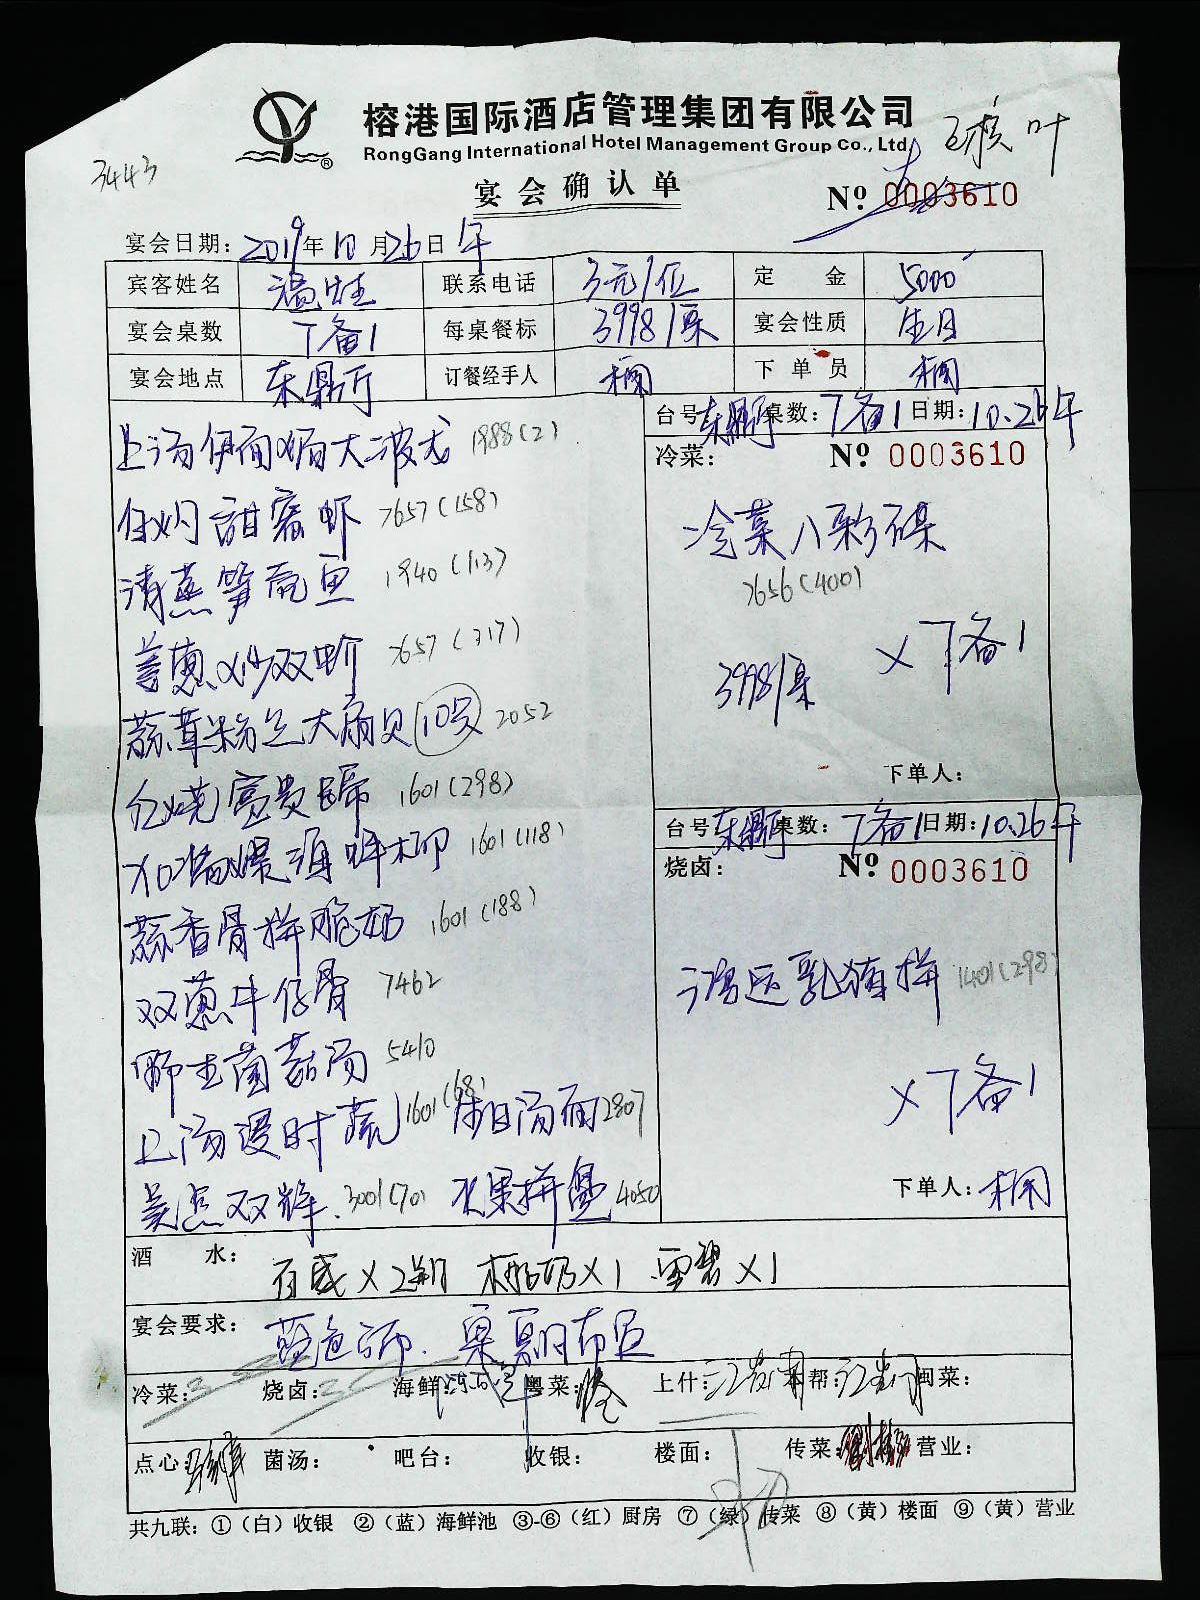 榕港国际酒店管理集团有限公司
RongGang International Hotel Management Group Co., Ltd
3443
叶
宴会确认单
№ 0003610
宴会日期: 2019年10月26日 午
宾客姓名 温 联系电话 3元/位 定 金 5000
宴会桌数 7备1 每桌餐标 3998/桌 宴会性质 生日
宴会地点 东鼎厅 订餐经手人 下单员
台号 东鼎厅 桌数: 7备1 日期: 10.26午
冷菜: № 0003610
上汤伊面焗大波龙 1988(2)
白灼甜蜜虾 7657(158)
冷菜八彩碟
7656(400)
清蒸笋壳鱼 1940(113)
姜葱炒双 7657(317)
3998/桌 × 7备1
蒜茸粉丝大扇贝 (10只) 2052
下单人:
红烧富贵蹄 1601(298)
台号 东鼎厅 桌数: 7备1 日期: 10.26午
烧卤: № 0003610
XO酱爆海蚌柳 1601(118)
蒜香骨拼脆奶 1601(188)
双葱牛仔骨 7462
鸿运乳猪拼 1401(298)
野生菌菇汤 5410
× 7备1
上汤浸时蔬 1601(68) 生日汤面 2807
美点双辉 3001(70) 水果拼盘 4050
下单人:
酒 水: 百威×2 椰奶×1 雪碧×1
宴会要求: 蓝色 布
冷菜: 烧卤: 海鲜: 粤菜: 上什: 本帮: 闽菜:
点心: 菌汤: 吧台: 收银: 楼面: 传菜: 营业:
共九联: ①(白)收银 ②(蓝)海鲜池 ③-⑥(红)厨房 ⑦(绿)传菜 ⑧(黄)楼面 ⑨(黄)营业